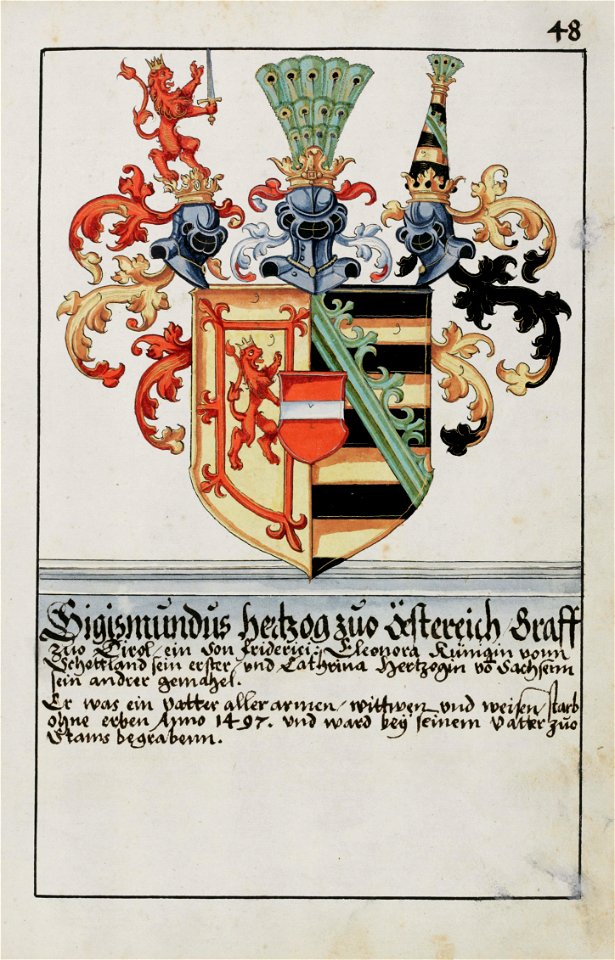 48
Sigismundus Hertzog zuo Östereich / Graff
zuo Tirol / ein Son Friderici: Eleonora Künigin vonn
Schottland sein erster / und Cathrina Hertzogin vō Sachsenn
sein andrer gemahel.
Er was ein vatter aller armen / wittwen und weisen / starb
ohne erben Anno 1497. und ward bey seinem vatter zuo
Stams begrabenn.